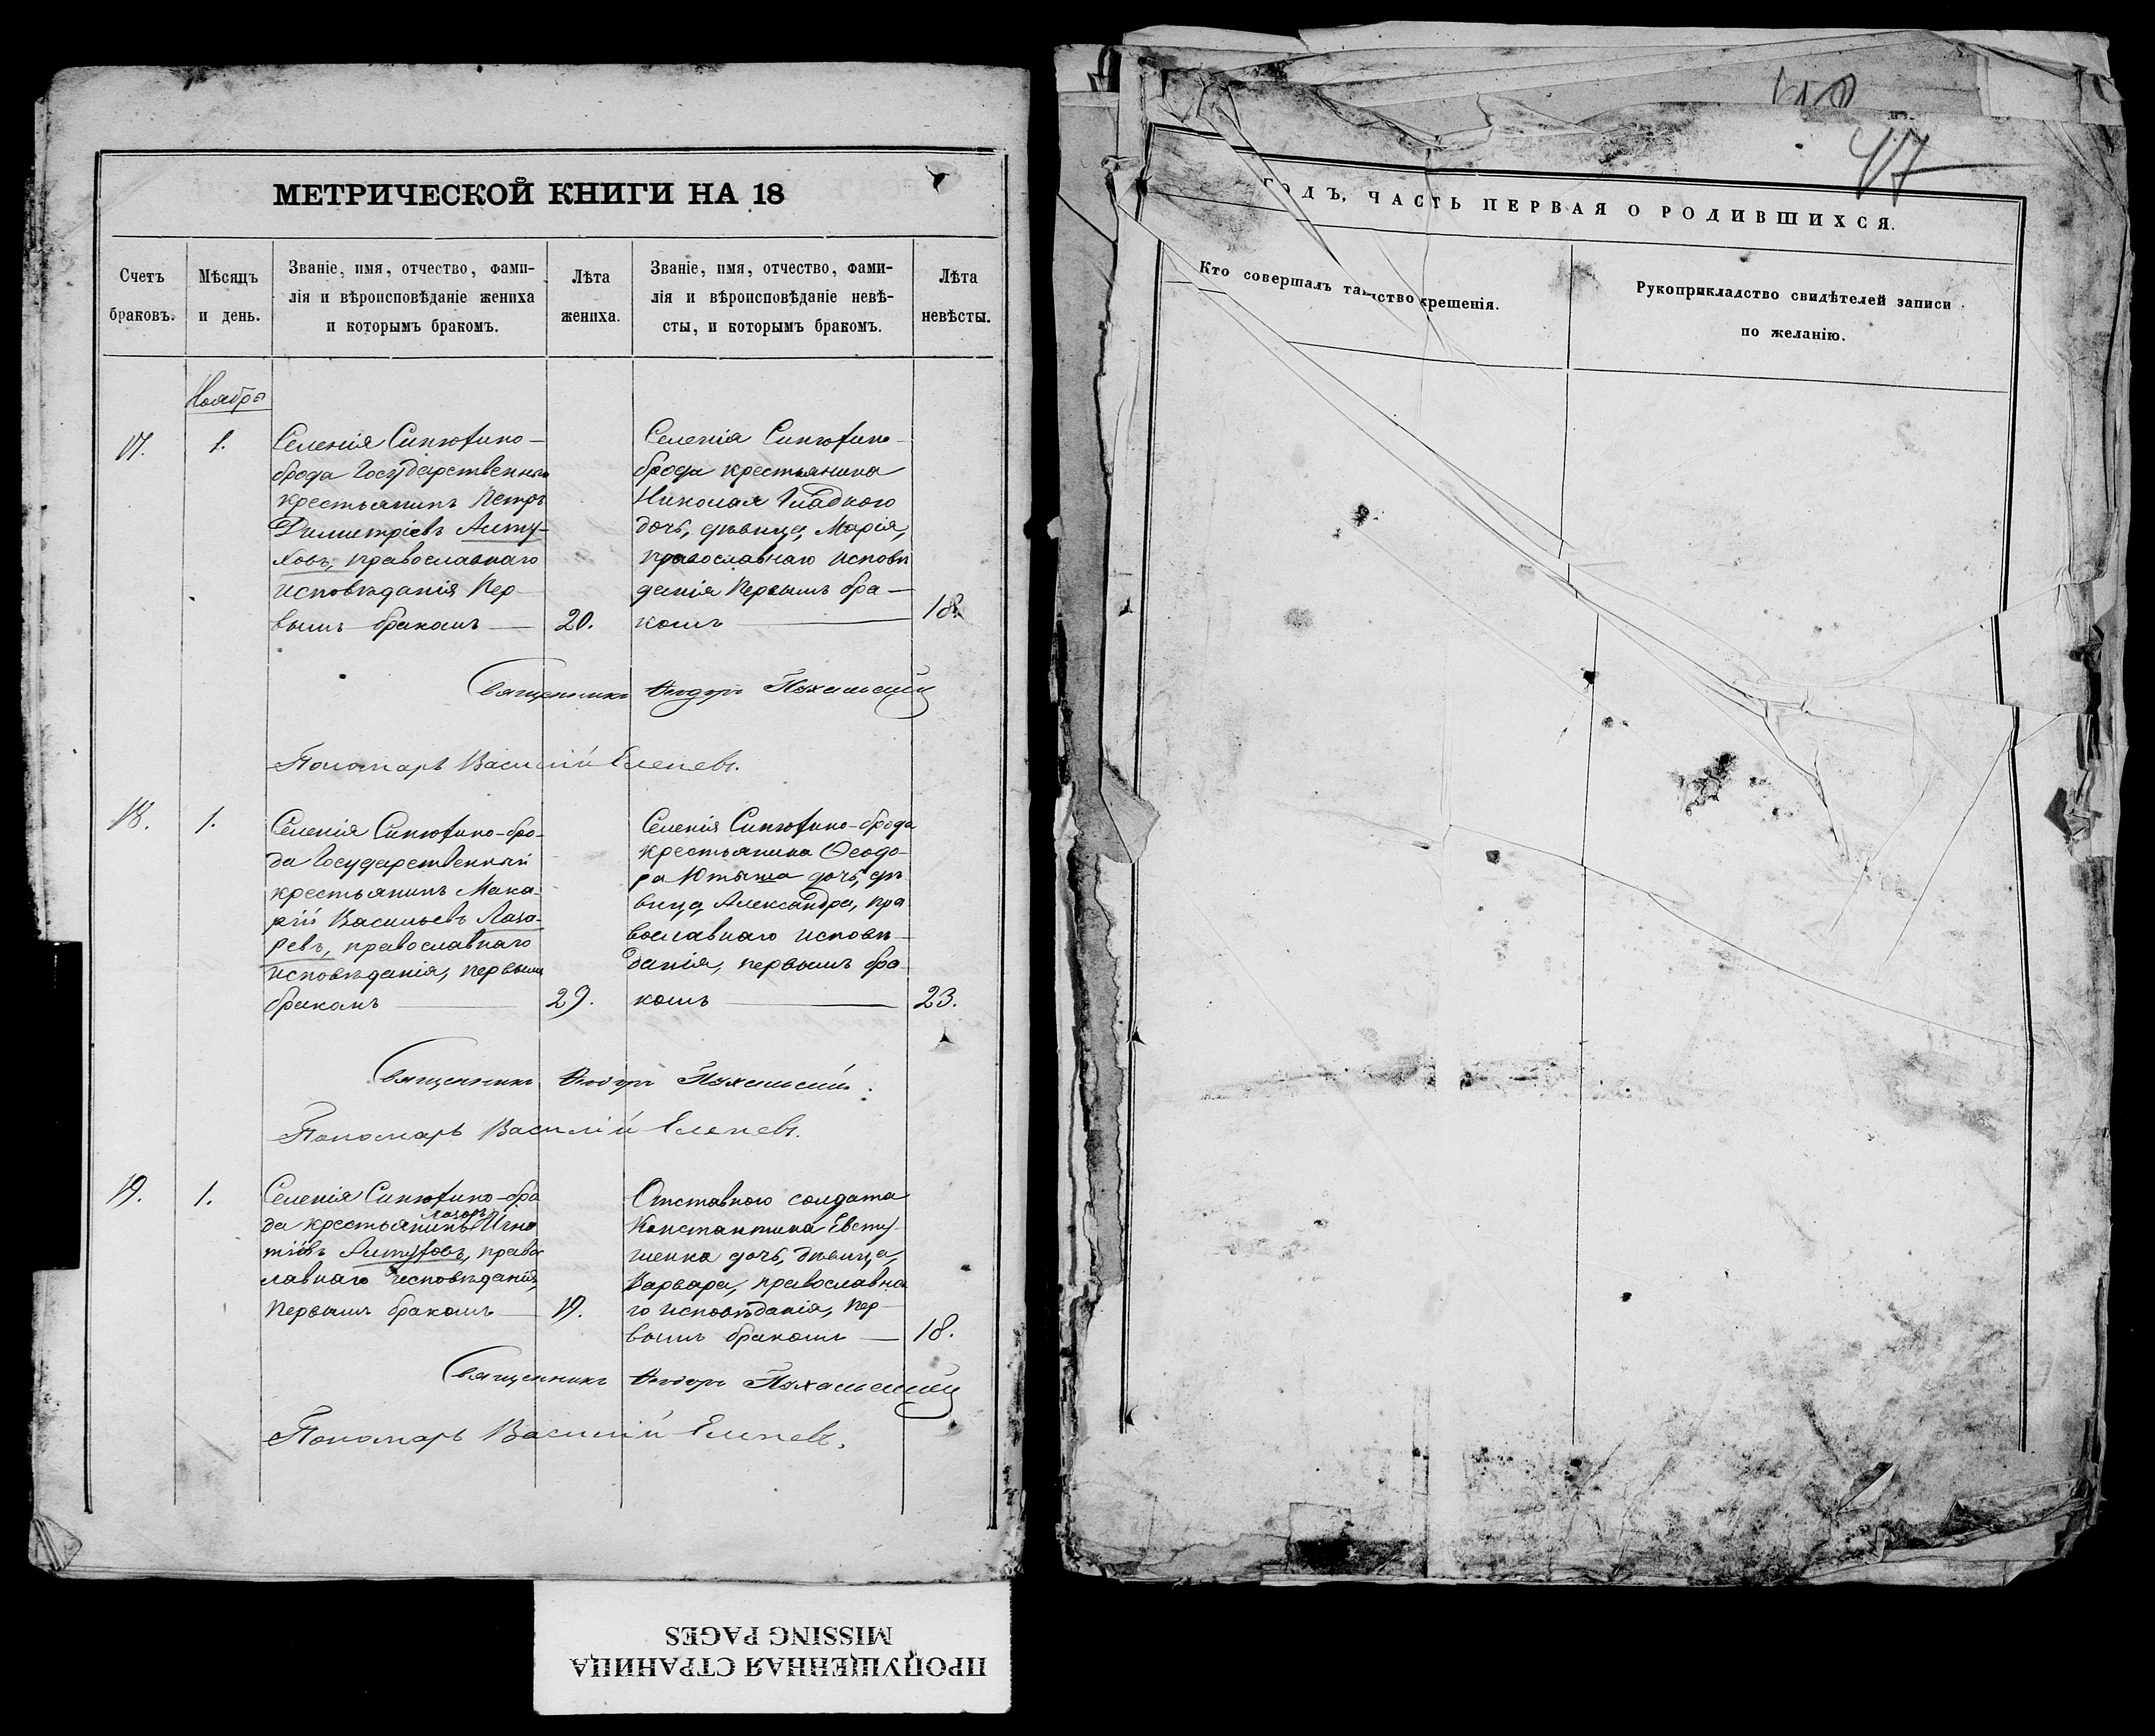 МЕТРИЧЕСКОЙ КНИГИ НА 18
Счетъ
браковъ.
Мѣсяцъ
и день.
Званіе, имя, отчество, фами-
лія и вѣроисповѣданіе жениха
и которымъ бракомъ.
Лѣта
жениха.
Званіе, имя, отчество, фами-
лія и вѣроисповѣданіе невѣ-
сты, и которымъ бракомъ.
Лѣта
невѣсты.
Ноября
17.
1.
Селенія Сипютино-
брода Государственный
крестьянинъ Петръ
Димитріевъ Алту-
ховъ, православнаго
исповѣданія Пер-
вымъ бракомъ
20.
Селенія Сипютино-
брода крестьянина
Николая Гладкого
дочь, дѣвица Марія,
православнаго исповѣ
данія Первымъ бра-
комъ
18.
Священникъ Ѳеодоръ
Пономарь Василій Еленевъ.
18.
1.
Селенія Сипютино-бро-
да Государственный
крестьянинъ Мака-
рій Васильевъ Лаза-
ревъ, православнаго
исповѣданія, первымъ
бракомъ
29.
Селенія Сипютино-брода
крестьянина Ѳеодо-
ра дочь, дѣ
вица Александра, пра
вославнаго исповѣ-
данія, первымъ бра-
комъ
23.
Священникъ Ѳеодоръ
Пономарь Василій Еленевъ.
19.
1.
Селенія Сипютино-бро
да крестьянинъ Лазарь Игна
тіевъ Алтуховъ, правос
лавнаго исповѣданія,
первымъ бракомъ
19.
Отставного солдата
Константина Евсту-
шенка дочь, дѣвица,
Варвара, православна
го исповѣданія, пер-
вымъ бракомъ
18.
Священникъ Ѳеодоръ
Пономарь Василій Еленевъ.
ПРОПУЩЕННАЯ СТРАНИЦА
MISSING PAGES
47
ГОДЪ, ЧАСТЬ ПЕРВАЯ О РОДИВШИХСЯ.
Кто совершалъ таинство крещенія.
Рукоприкладство свидѣтелей записи
по желанію.